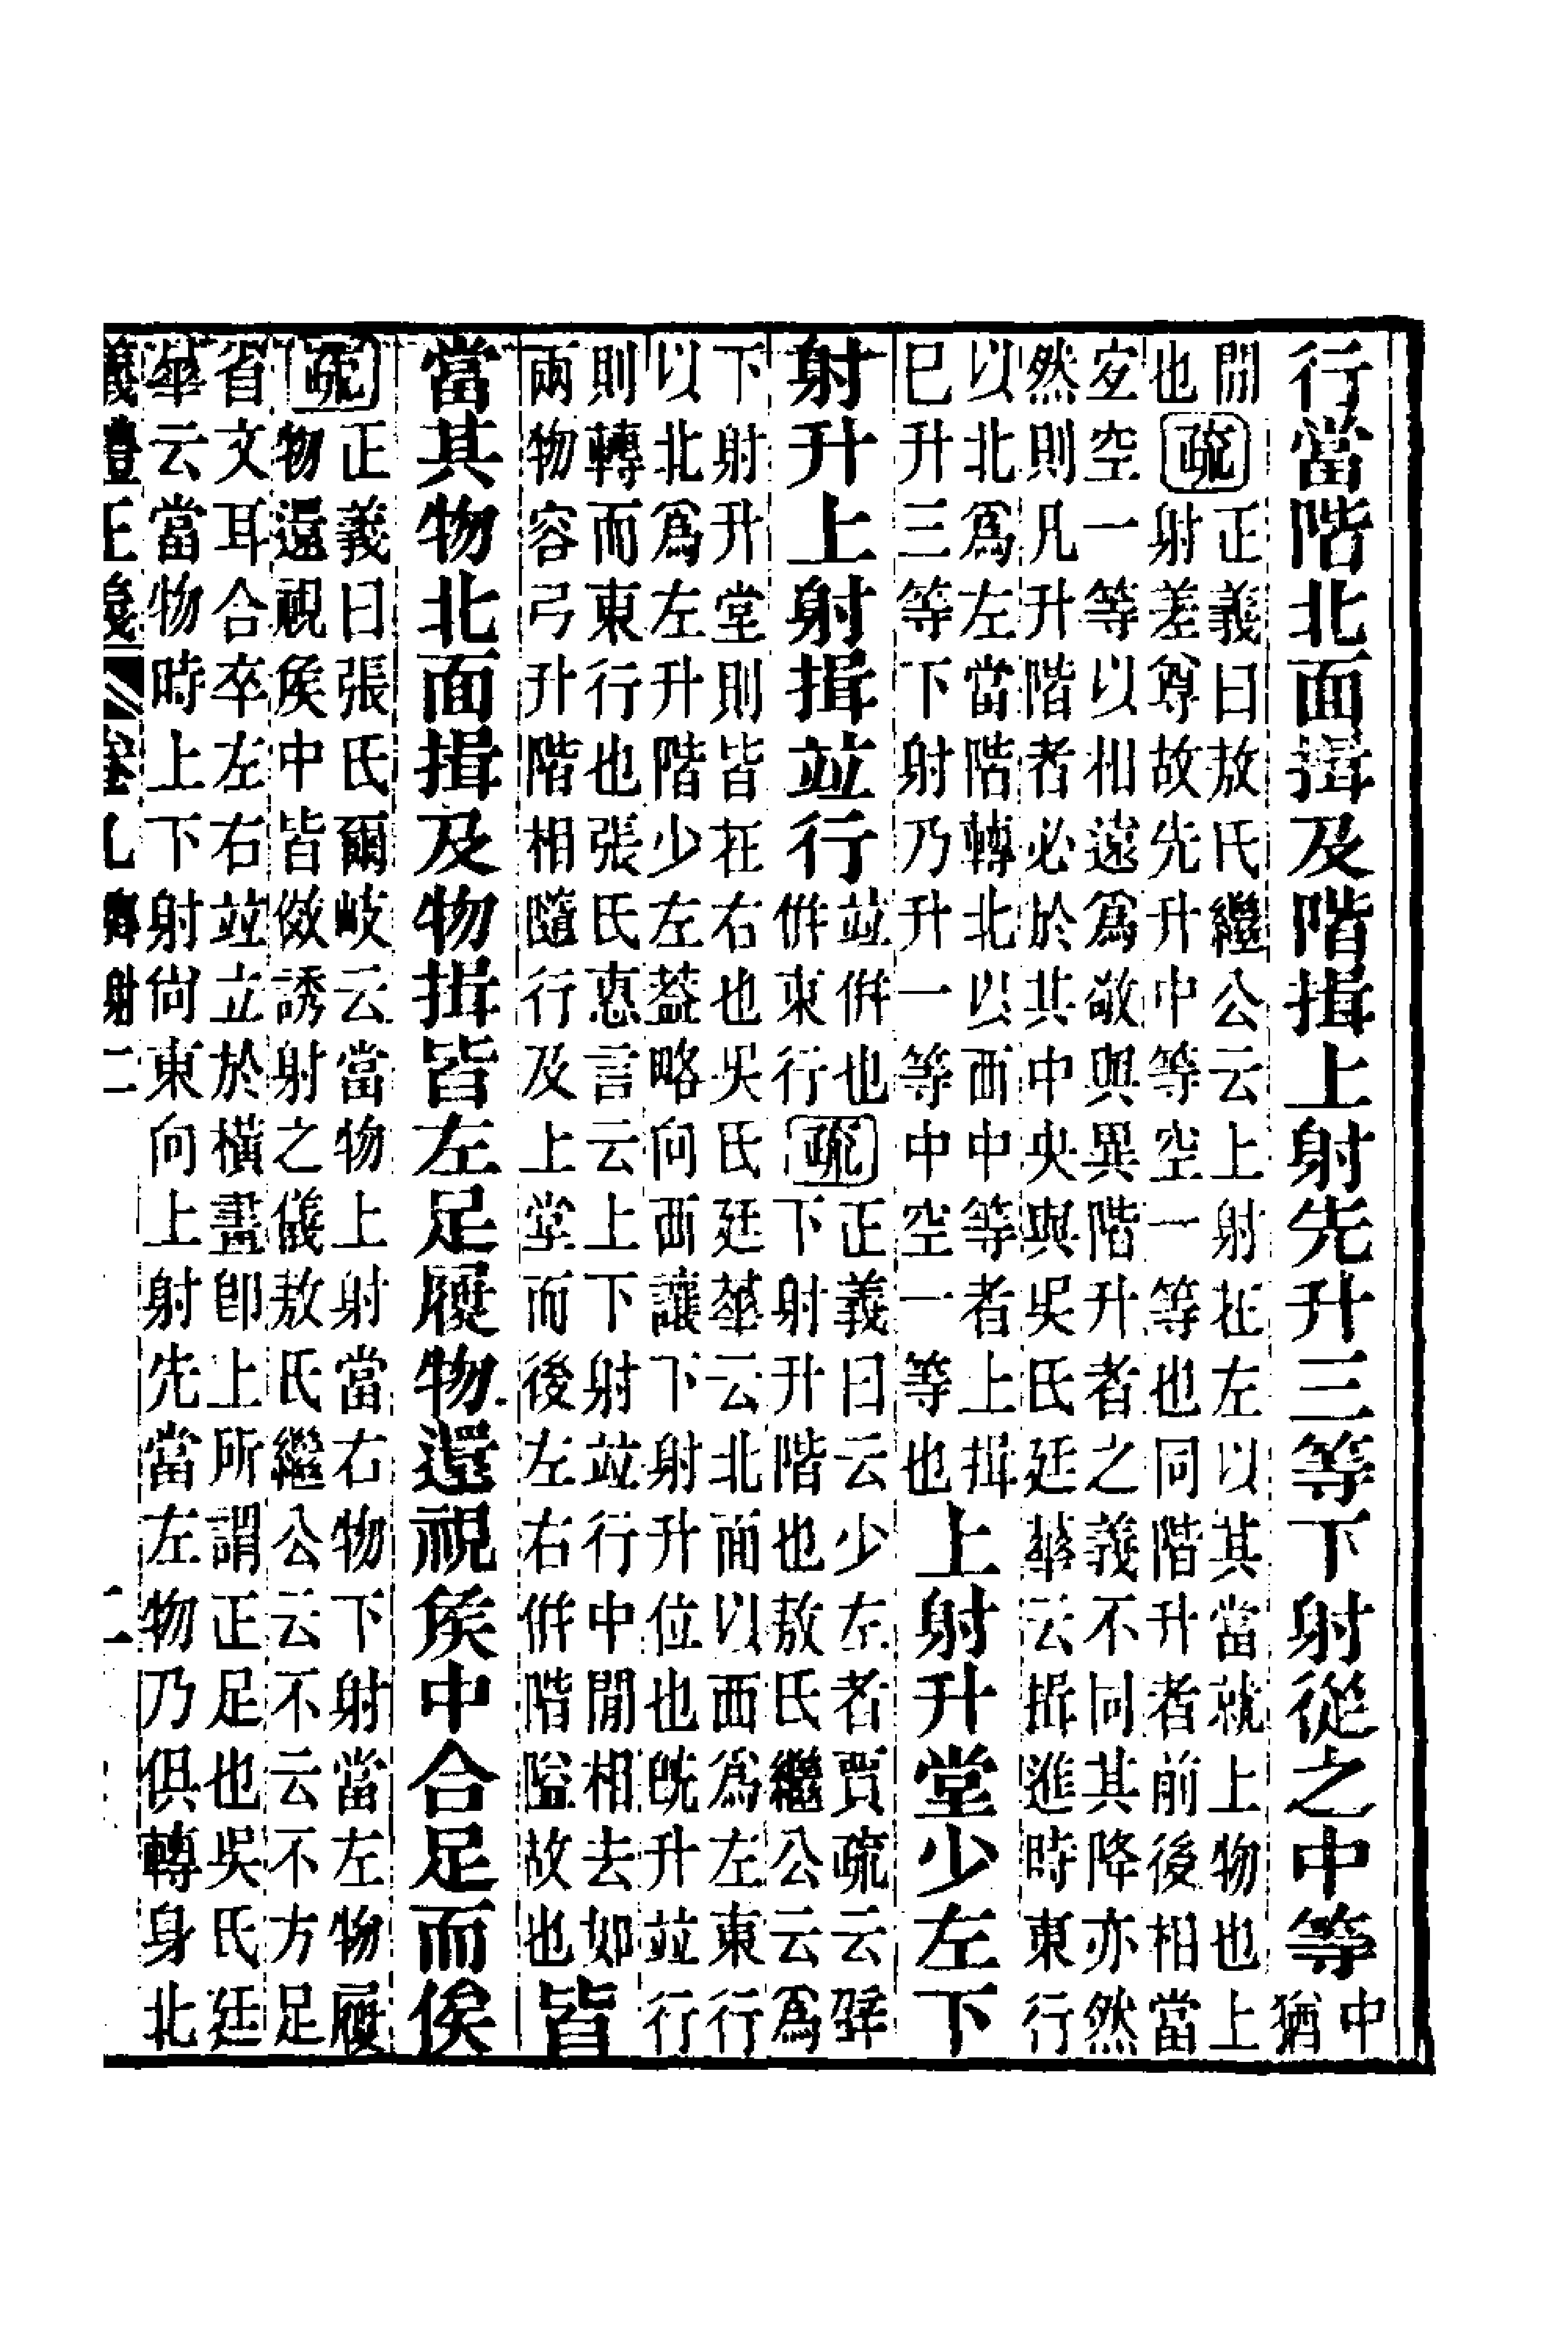 行當階北面揖及階揖上射先升三等下射從之中等中
猶
閒
也
疏
正義曰敖氏繼公云上射在左以其當就上物也上
射差尊故先升中等空一等也同階升者前後相當
宐空一等以相遠爲敬與異階升者之義不同其降亦然
然則凡升階者必於其中央與吳氏廷華云揖進時東行
以北爲左當階轉北以西中等者上揖
已升三等下射乃升一等中空一等也
上射升堂少左下
射升上射揖竝行
竝併也
併東行
疏
正義曰云少左者賈疏云辟
下射升階也敖氏繼公云爲
下射升堂則皆在右也吳氏廷華云北面以西爲左東行
以北爲左升階少左葢略向西讓下射升位也旣升竝行
則轉而東行也張氏惠言云上下射竝行中閒相去如
兩物容弓升階相隨行及上堂而後左右併階隘故也
皆
當其物北面揖及物揖皆左足履物還視矦中合足而俟
疏
正義曰張氏爾岐云當物上射當右物下射當左物履
物還視矦中皆做誘射之儀敖氏繼公云不云不方足
省文耳合卒左右竝立於橫畫卽上所謂正足也吳氏廷
華云當物時上下射尚東向上射先當左物乃俱轉身北
儀禮正義 卷九鄉射二 二